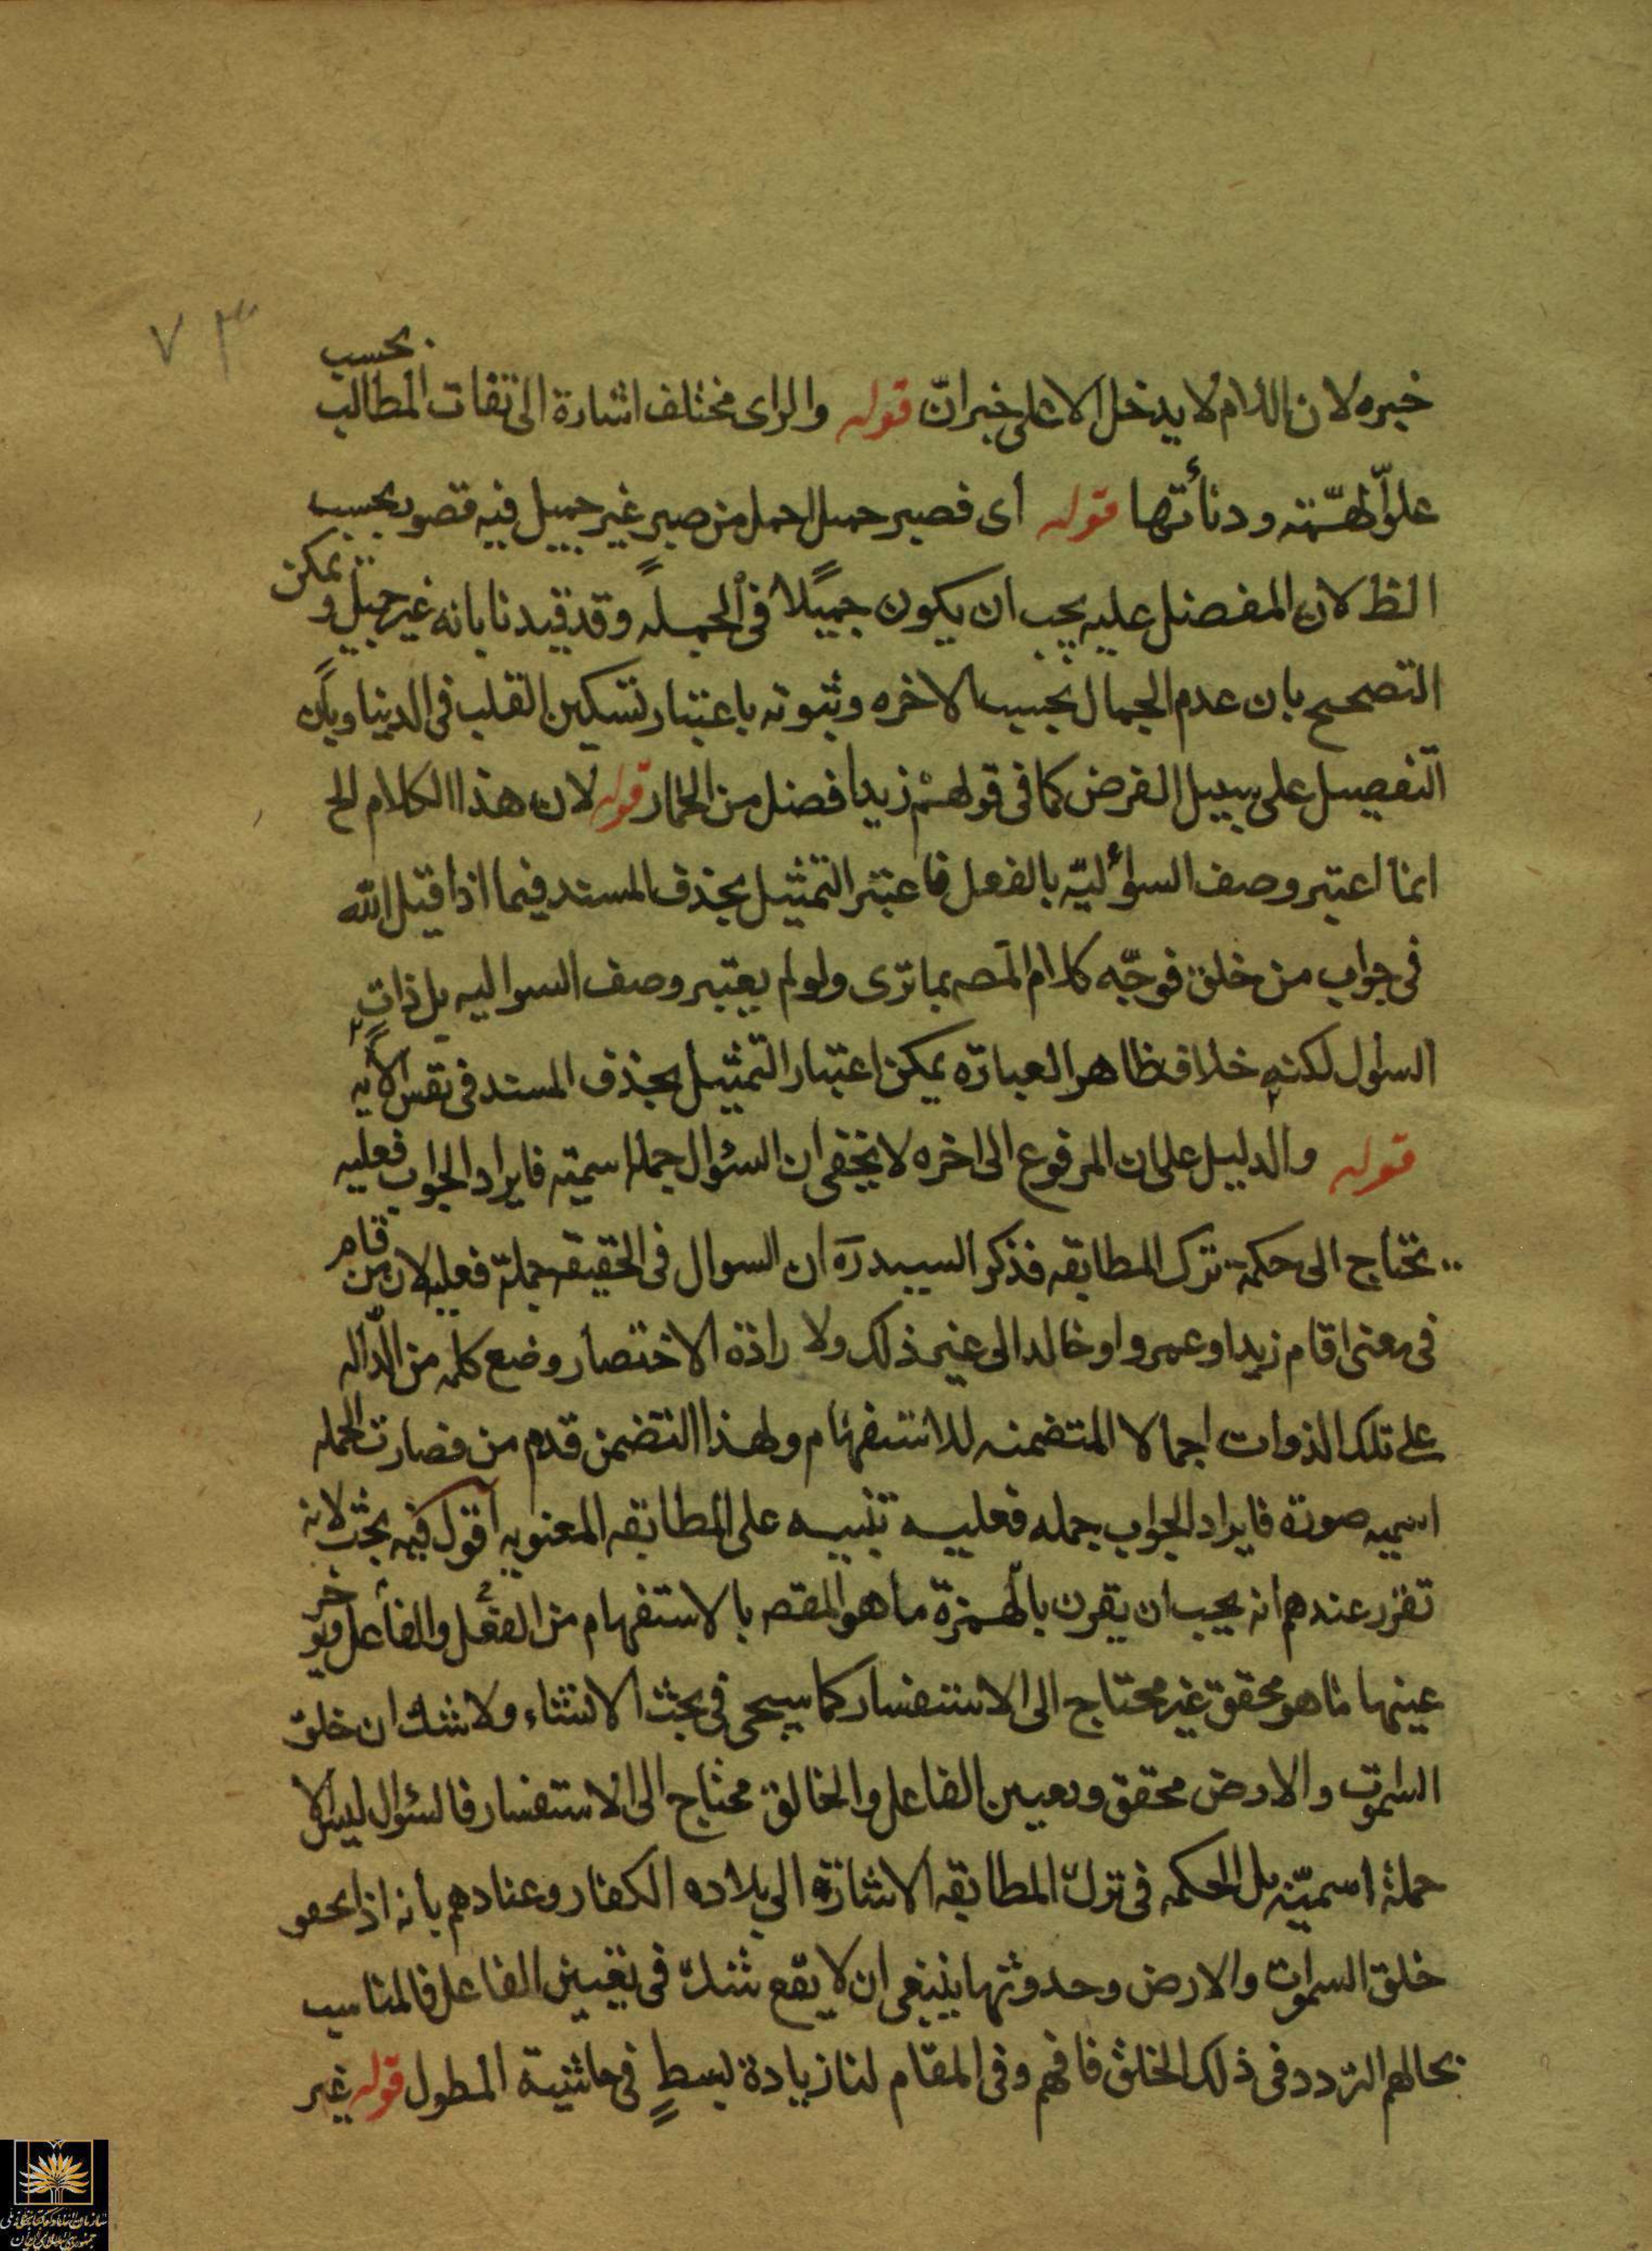 ٧٣
خبره لان اللام لا يدخل الا على خبر انّ قوله والراى مختلف اشارة الى تفات المطالب بحسب
علوّ الهمّته ودنأتها قوله اى فصبر جميل اجمل من صبر غير جميل فيه قصور بحسب
الظ لان المفضل عليه يجب ان يكون جميلا فى الجمله وقد قيدنا بانه غير جميل و يمكن
التصحيح بان عدم الجمال بحسب الاخره وثبوته باعتبار تسكين القلب فى الدنيا وبان
التفصيل على سبيل الفرض كما فى قولهم زيد افضل من الحمار قوله لان هذا الكلام الخ
انما اعتبر وصف السؤاليّه بالفعل فاعتبر التمثيل بحذف المسند فيما اذا قيل الله
فى جواب من خلق فوجّه كلام المصه بما ترى ولو لم يعتبر وصف السواليه بل ذات
السئول لكنه خلاف ظاهر العبارة يمكن اعتبار التمثيل بحذف المسند فى نفس الايه
قوله والدليل على ان المرفوع الى اخره لا يخفى ان السئوال جملة اسميته فايراد الجواب فعليه
تحتاج الى حكمة ترك المطابقه فذكر السيد ره ان السوال فى الحقيقه جملة فعليه لان من قام
فى معنى اقام زيد او عمرو او خالد الى غير ذلك ولا رادة الاختصار وضع كلمه من الدّاله
على تلك الذوات اجمالا المتضمنه للاستفهام ولهذا التضمن قدم من فصارت الجمله
اسميه صورة فايراد الجواب جمله فعليه تنبيه على المطابقه المعنويه اقول فيه بحث لانه
تقرر عندهم انه يجب ان يقرن بالهمزة ما هو المقصه بالاستفهام من الفعل والفاعل ويوخر
عينها ما هو محقق غير محتاج الى الاستفسار كما سيجى فى بحث الانشاء ولا شك ان خلق
السموت والارض محقق وتعيين الفاعل والخالق محتاج الى الاستفسار فالسئوال ليس الا
جملة اسميّه بل الحكمه فى ترك المطابقه الاشارة الى بلاده الكفار وعنادهم بأنه اذا تحقق
خلق السموات والارض وحدوثها ينبغى ان لا يقع شك فى تعيين الفاعل فالمناسب
بحالهم التردد فى ذلك الخلق فافهم وفى المقام لنا زيادة بسط فى حاشية المطول قوله غير